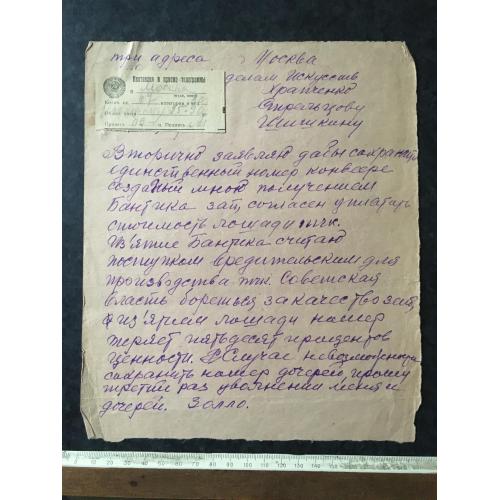 три адреса Москва
делам Искусств
Храпченко
Стрельцову
Шишкину
Квитанция в приеме телеграммы
В Москва
Вторично заявляю дабы сохранить
единственный номер конвеере
созданый мною получением
Бантика зпт согласен уплатить
стоимость лошади тчк.
Из'ятие Бантика считаю
поступком вредительским для
производства тчк. Советская
власть бореться за качество зпт
с из'ятием лошади номер
теряет пятьдесят процентов
ценности. В случае невозможности
сохранить номер дочерей, прошу
третий раз увольнении меня и
дочерей. Золло.
10 20 30 40 50 60 70 80 90 100 110 120 130 140 150 160 170 180 190